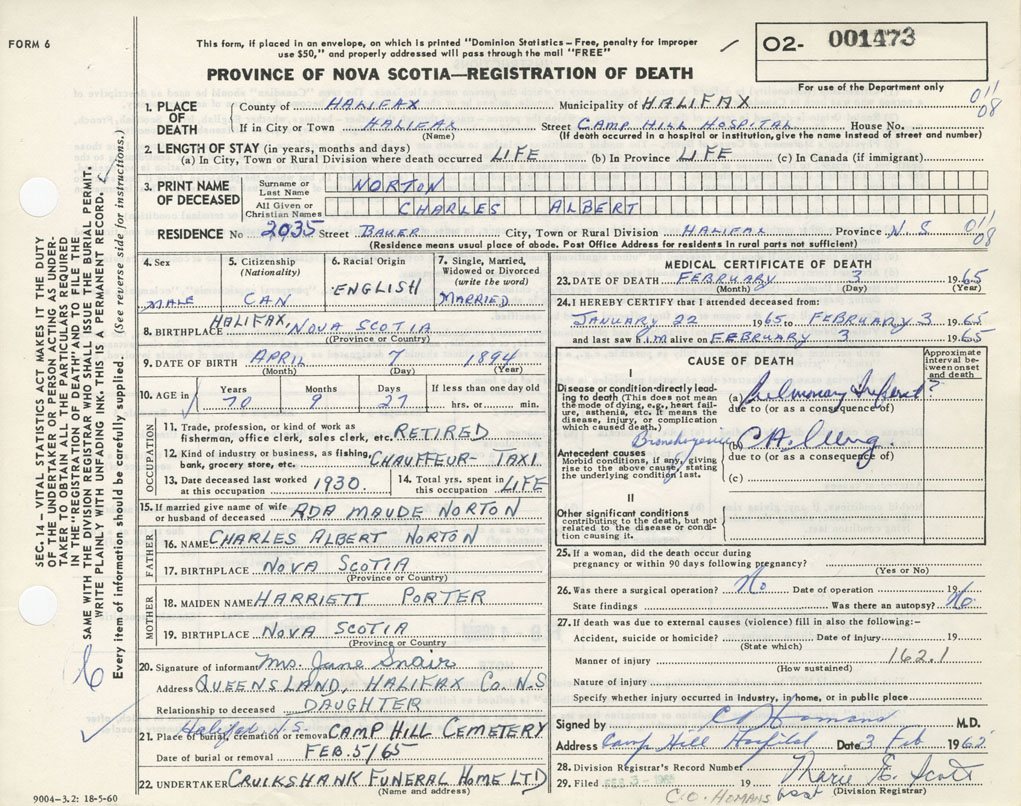 FORM 6
This form, if placed in an envelope, on which is printed "Dominion Statistics – Free, penalty for improper
use $50," and properly addressed will pass through the mail "FREE"
PROVINCE OF NOVA SCOTIA—REGISTRATION OF DEATH
02- 001473
For use of the Department only
SEC. 14 – VITAL STATISTICS ACT MAKES IT THE DUTY
OF THE UNDERTAKER OR PERSON ACTING AS UNDER-
TAKER TO OBTAIN ALL THE PARTICULARS REQUIRED
IN THE "REGISTRATION OF DEATH" AND TO FILE THE
SAME WITH THE DIVISION REGISTRAR WHO SHALL ISSUE THE BURIAL PERMIT.
WRITE PLAINLY WITH UNFADING INK. THIS IS A PERMANENT RECORD.
Every item of information should be carefully supplied. (See reverse side for instructions.)
1. PLACE OF DEATH County of HALIFAX Municipality of HALIFAX 011 08
If in City or Town HALIFAX Street CAMP HILL HOSPITAL House No.
(Name) (If death occurred in a hospital or institution, give the name instead of street and number)
2. LENGTH OF STAY (in years, months and days)
(a) In City, Town or Rural Division where death occurred LIFE (b) In Province LIFE (c) In Canada (if immigrant)
3. PRINT NAME OF DECEASED Surname or Last Name NORTON
All Given or Christian Names CHARLES ALBERT
RESIDENCE No 2035 Street BAUER City, Town or Rural Division HALIFAX Province N.S 011 08
(Residence means usual place of abode. Post Office Address for residents in rural parts not sufficient)
4. Sex MALE
5. Citizenship (Nationality) CAN
6. Racial Origin ENGLISH
7. Single, Married, Widowed or Divorced (write the word) MARRIED
8. BIRTHPLACE HALIFAX, NOVA SCOTIA
(Province or Country)
9. DATE OF BIRTH APRIL 7 1894
(Month) (Day) (Year)
10. AGE in Years 70 Months 9 Days 27 If less than one day old hrs. or min.
OCCUPATION
11. Trade, profession, or kind of work as
fisherman, office clerk, sales clerk, etc. RETIRED
12. Kind of industry or business, as fishing,
bank, grocery store, etc. CHAUFFEUR- TAXI
13. Date deceased last worked at this occupation 1930. 14. Total yrs. spent in this occupation LIFE
15. If married give name of wife or husband of deceased ADA MAUDE NORTON
FATHER
16. NAME CHARLES ALBERT NORTON
17. BIRTHPLACE NOVA SCOTIA
(Province or Country)
MOTHER
18. MAIDEN NAME HARRIETT PORTER
19. BIRTHPLACE NOVA SCOTIA
(Province or Country)
20. Signature of informant Mrs. Jane Snair
Address QUEENSLAND, HALIFAX CO. N.S
Relationship to deceased DAUGHTER
21. Place of burial, cremation or removal Halifax N.S. CAMP HILL CEMETERY
Date of burial or removal FEB. 5/65
22. UNDERTAKER CRUIKSHANK FUNERAL HOME LTD
(Name and address)
9004-3.2: 18-5-60
MEDICAL CERTIFICATE OF DEATH
23. DATE OF DEATH FEBRUARY 3 1965
(Month) (Day) (Year)
24. I HEREBY CERTIFY that I attended deceased from:
JANUARY 22 1965 to FEBRUARY 3 1965
and last saw him alive on FEBRUARY 3 1965
CAUSE OF DEATH
Approximate interval between onset and death
I
Disease or condition directly leading to death (This does not mean the mode of dying, e.g., heart failure, asthenia, etc. It means the disease, injury, or complication which caused death.)
(a) Pulmonary Infarct ?
due to (or as a consequence of)
Bronchogenic (b) CA. Lung.
due to (or as a consequence of)
Antecedent causes
Morbid conditions, if any, giving rise to the above cause, stating the underlying condition last.
(c)
II
Other significant conditions
contributing to the death, but not related to the disease or condition causing it.
25. If a woman, did the death occur during
pregnancy or within 90 days following pregnancy?
(Yes or No)
26. Was there a surgical operation? No Date of operation 19
State findings Was there an autopsy? No
27. If death was due to external causes (violence) fill in also the following:–
Accident, suicide or homicide? Date of injury 19
(State which)
Manner of injury 162.1
(How sustained)
Nature of injury
Specify whether injury occurred in industry, in home, or in public place
Signed by C O Homans M.D.
Address Camp Hill Hospital Date 3 Feb 1965
28. Division Registrar's Record Number
29. Filed 19 Marie E. Scott
asst (Division Registrar)
C. O. HOMANS